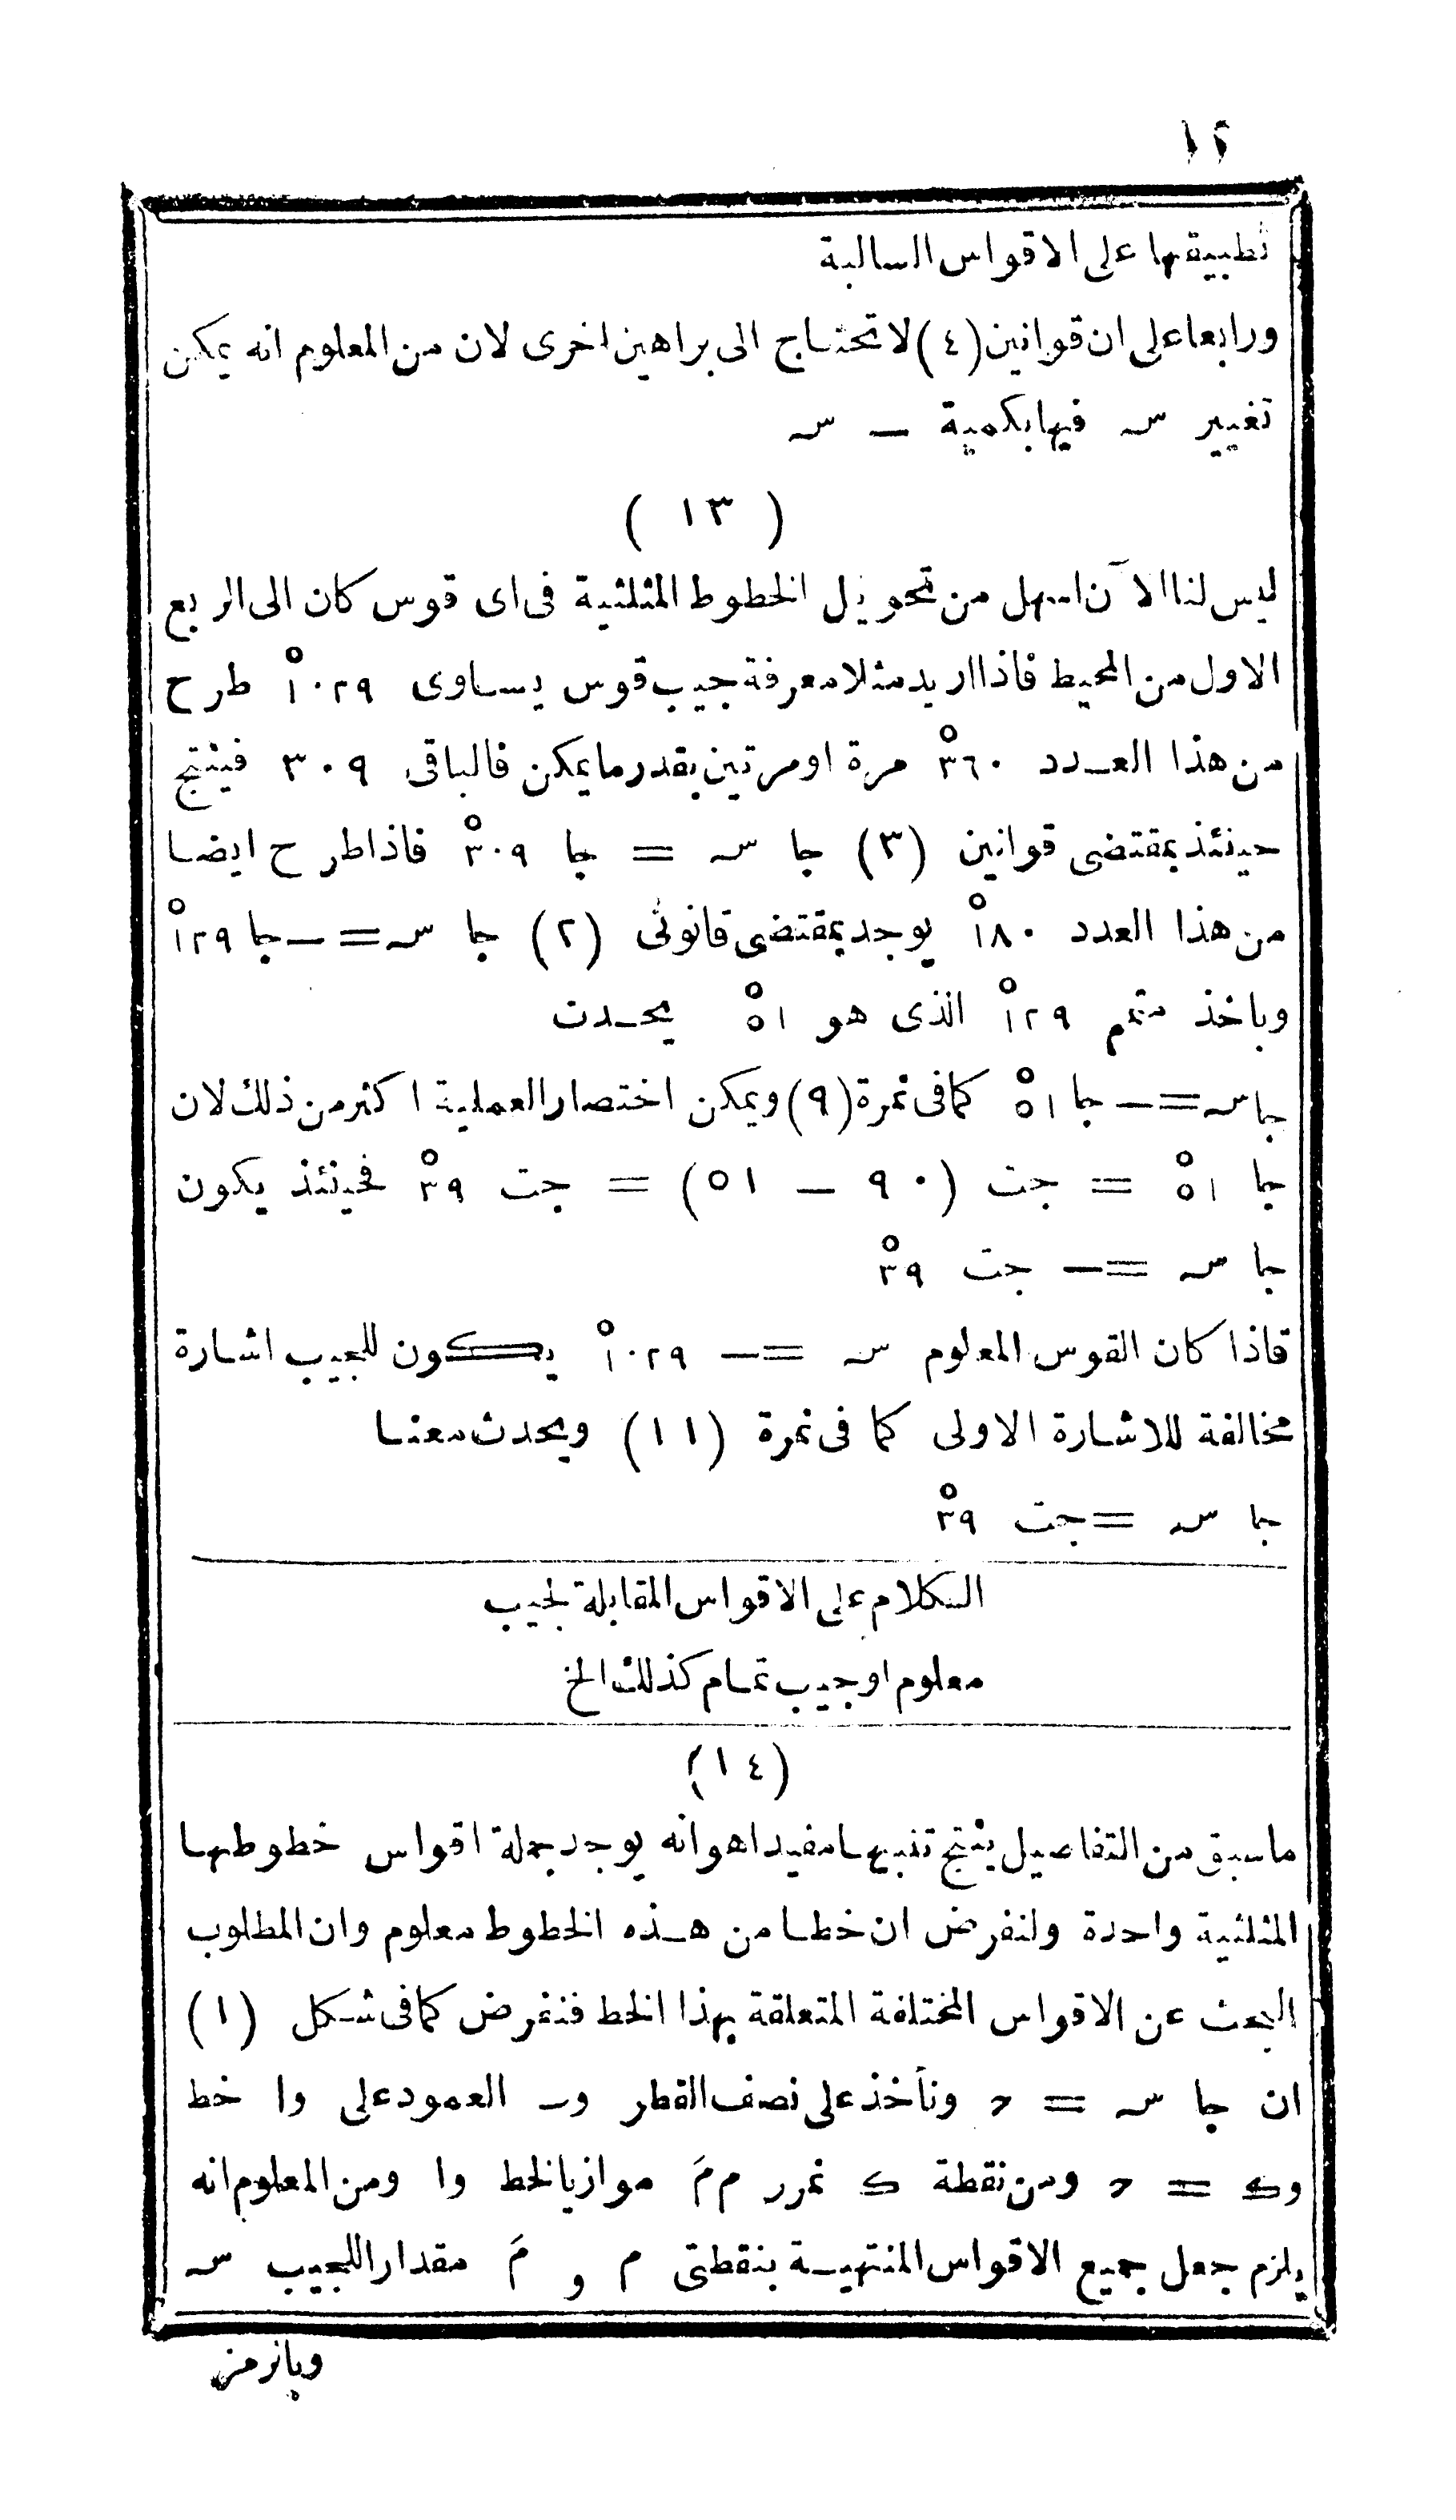 ١٢
تطبيقها على الاقواس السالبة
ورابعا على ان قوانين (٤) لا تحتاج الى براهين اخرى لان من المعلوم انه يمكن
تغيير سه فيها بكمية — سه
( ١٣ )
ليس لنا الآن اسهل من تحويل الخطوط المثلثية فى اى قوس كان الى الربع
الاول من المحيط فاذا اريد مثلا معرفة جيب قوس يساوى ١٠٢٩° طرح
من هذا العدد ٣٦٠° مرة او مرتين بقدر ما يمكن فالباقى ٣٠٩ فينتج
حينئذ بمقتضى قوانين (٣) جا سه = جا ٣٠٩° فاذا طرح ايضا
من هذا العدد ١٨٠° يوجد بمقتضى قانونى (٢) جا سه = — جا ١٢٩°
وباخذ متمم ١٢٩° الذى هو ٥١° يحدث
جا سه = — جا ٥١° كما فى نمرة (٩) ويمكن اختصار العملية اكثر من ذلك لان
جا ٥١° = جت (٩٠ — ٥١) = جت ٣٩° فحينئذ يكون
جا سه = — جت ٣٩°
فاذا كان القوس المعلوم سه = — ١٠٢٩° يكون للجيب اشارة
مخالفة للاشارة الاولى كما فى نمرة (١١) ويحدث معنا
جا سه = جت ٣٩°
الكلام على الاقواس المقابلة لجيب
معلوم او جيب تمام كذلك الخ
(١٤)
ما سبق من التفاصيل ينتج تنبيها مفيدا هو انه يوجد جملة اقواس خطوطها
المثلثية واحدة ولنفرض ان خطا من هذه الخطوط معلوم وان المطلوب
البحث عن الاقواس المختلفة المتعلقة بهذا الخط فنفرض كما فى شكل (١)
ان جا سه = د ونأخذ على نصف القطر وب العمود على وا خط
وك = د ومن نقطة ك نمرر م مَ موازيا لخط وا ومن المعلوم انه
يلزم جعل جميع الاقواس المنتهية بنقطتى م و مَ مقدارا للجيب سه